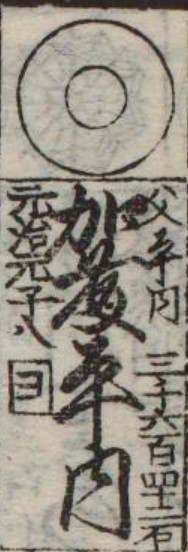 父平内 三千六百四十二石
加藤平内
元治元子八
ヨ